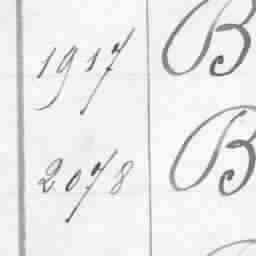 1917 B
2078 B